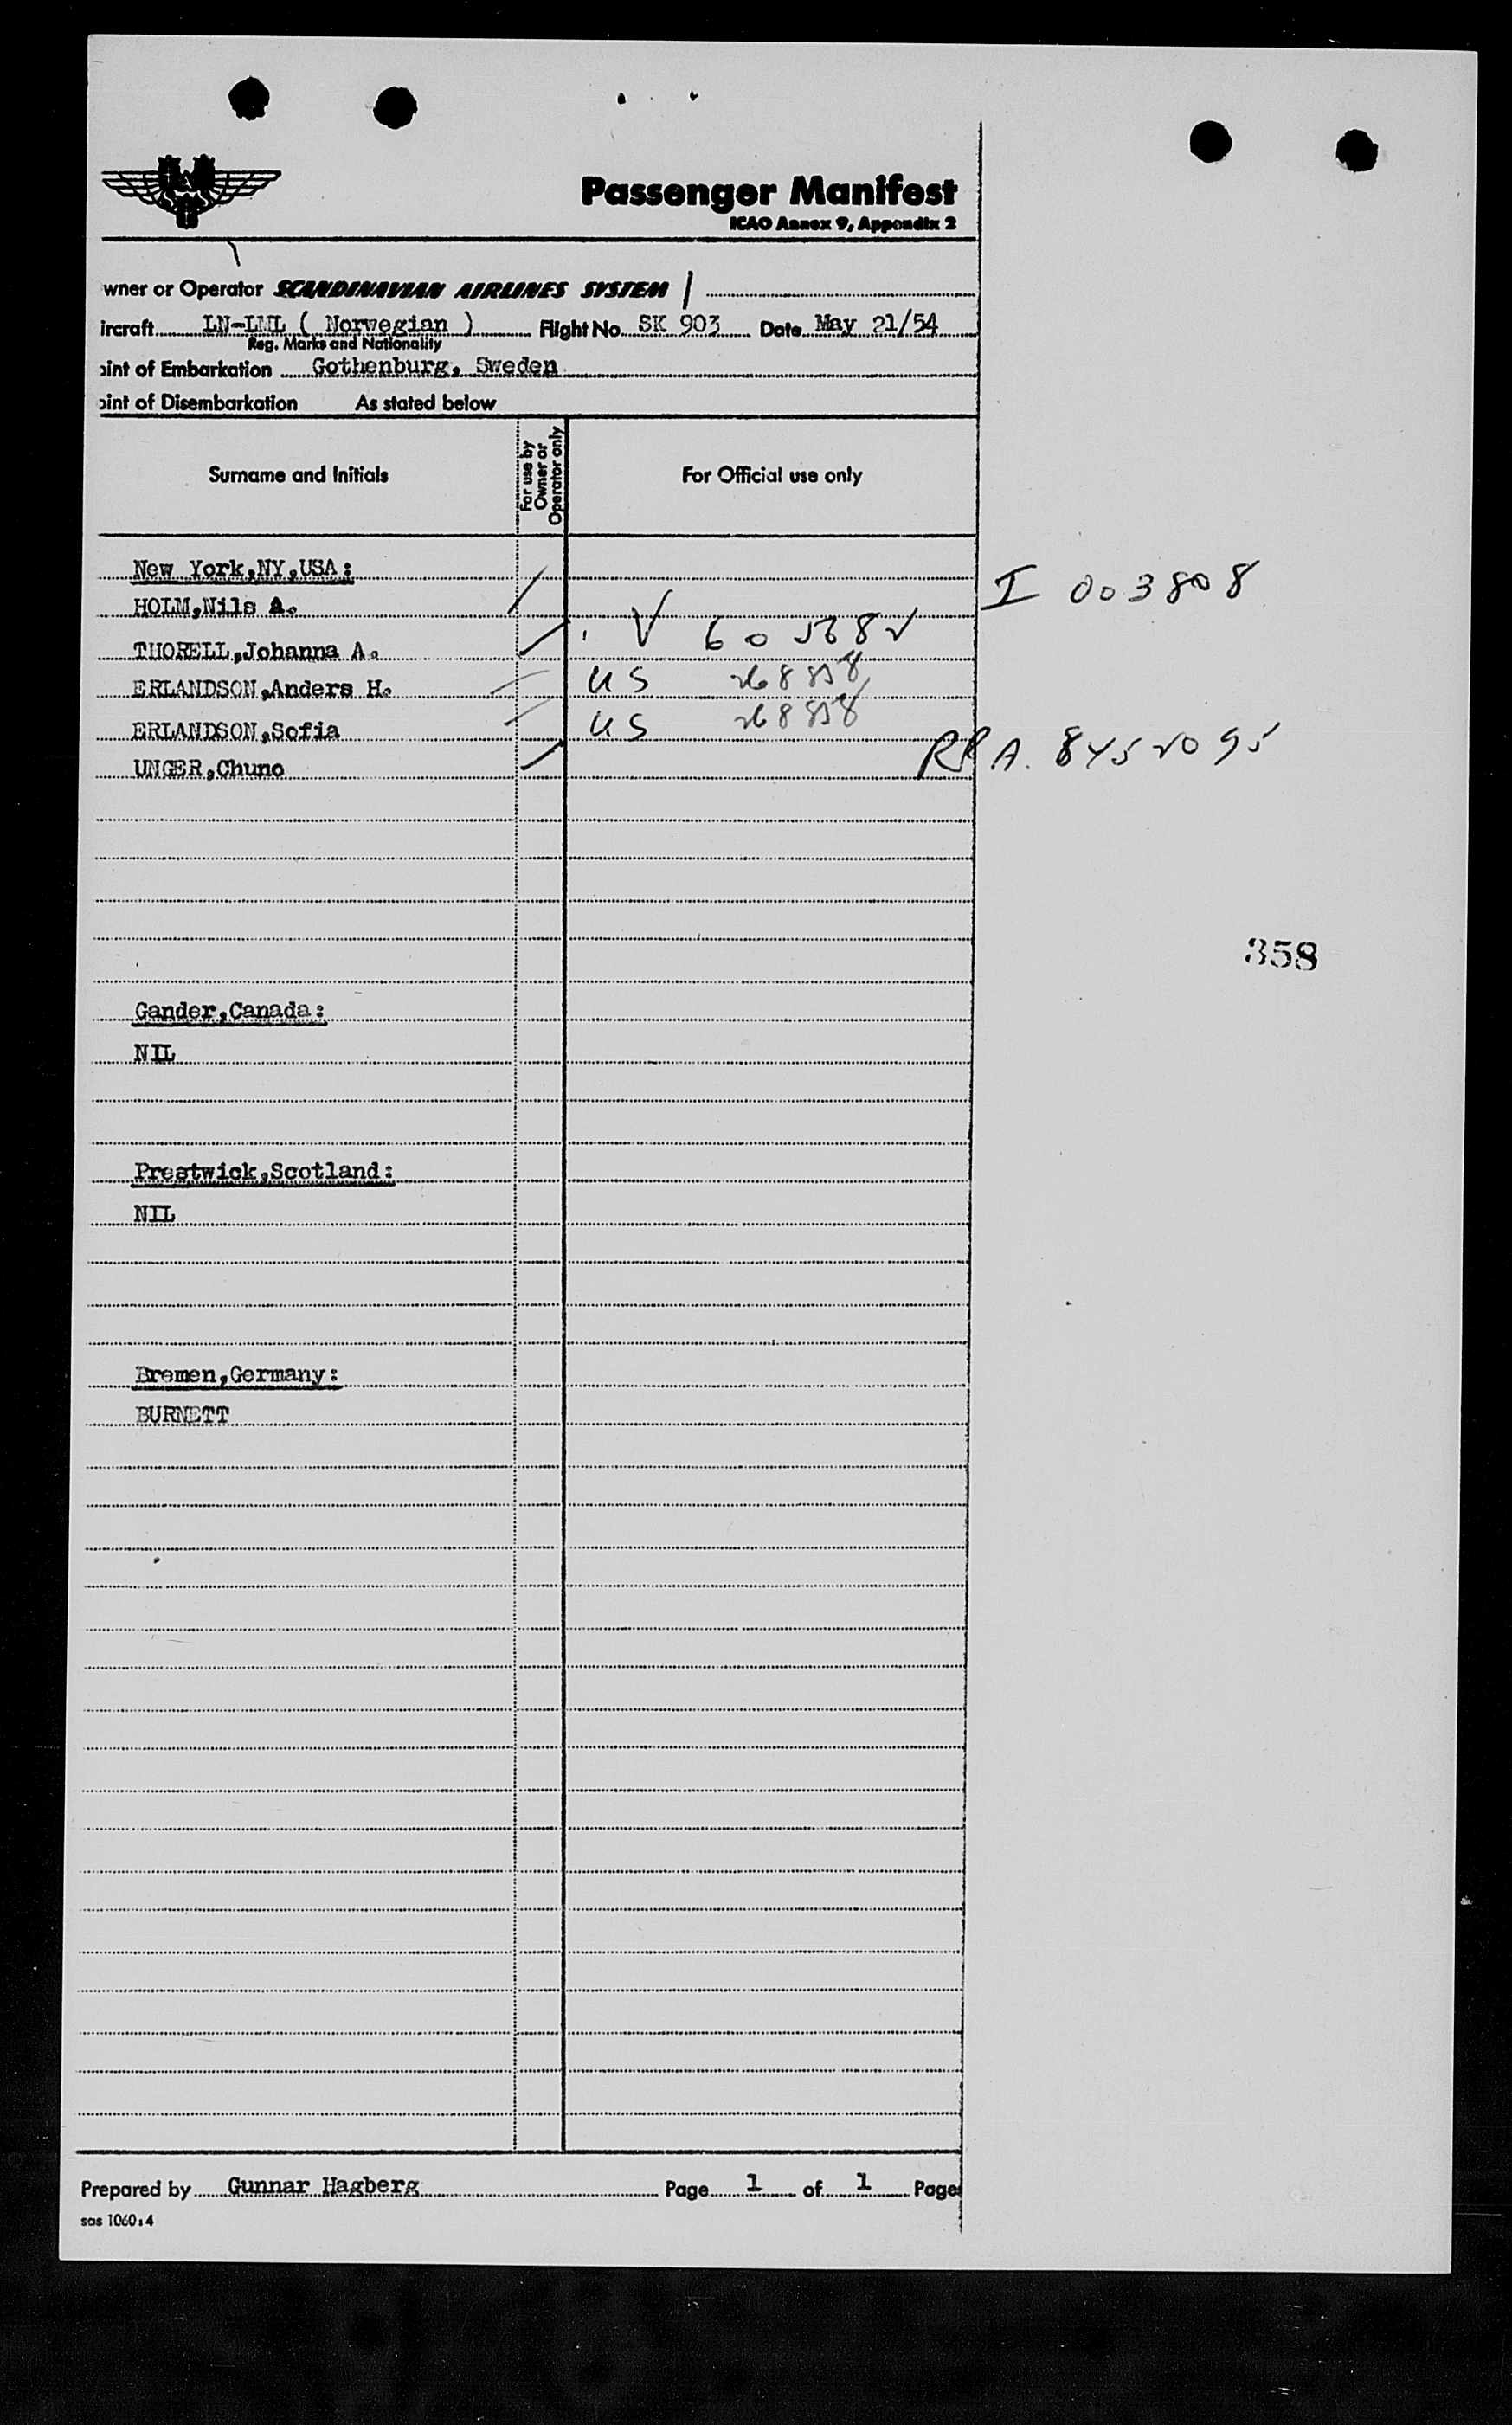 Passenger Manifest
ICAO Annex 9, Appendix 2
wner or Operator SCANDINAVIAN AIRLINES SYSTEM
ircraft LN-LML ( Norwegian ) Flight No. SK 903 Date May 21/54
Reg. Marks and Nationality
oint of Embarkation Gothenburg, Sweden
oint of Disembarkation As stated below
Surname and Initials
For use by Owner or Operator only
For Official use only
New York,NY,USA:
HOLM,Nils A. I 003808
THORELL,Johanna A. V
ERLANDSON,Anders H. US
ERLANDSON,Sofia US
UNGER,Chuno
358
Gander,Canada:
NIL
Prestwick,Scotland:
NIL
Bremen,Germany:
BURNETT
Prepared by Gunnar Hagberg Page 1 of 1 Pages
sas 1060:4